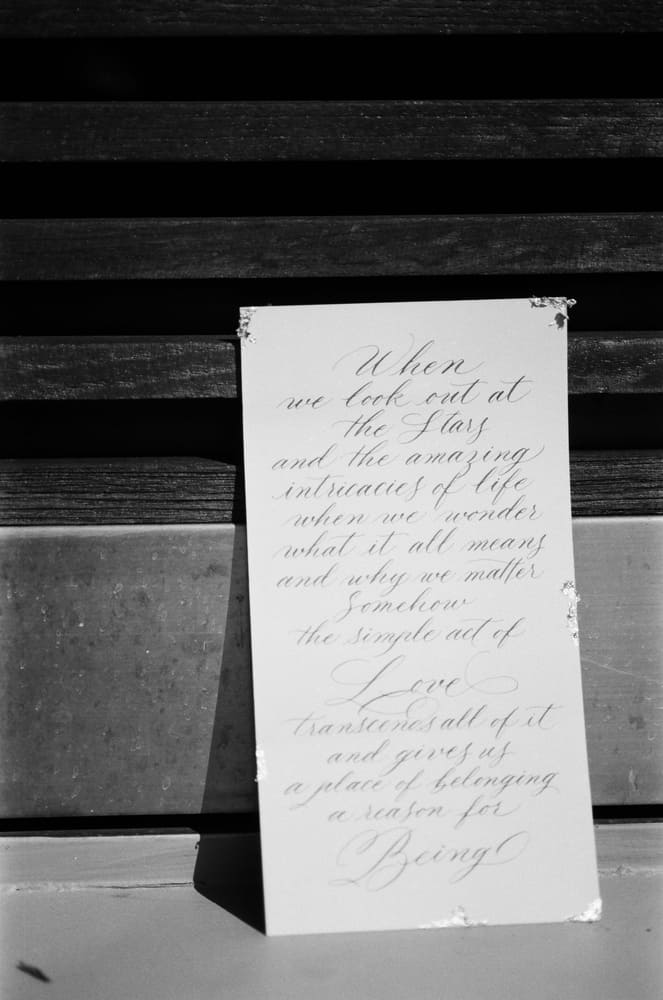 When
we look out at
the Stars
and the amazing
intricacies of life
when we wonder
what it all means
and why we matter
Somehow
the simple act of
Love
transcenes all of it
and gives us
a place of belonging
a reason for
Being